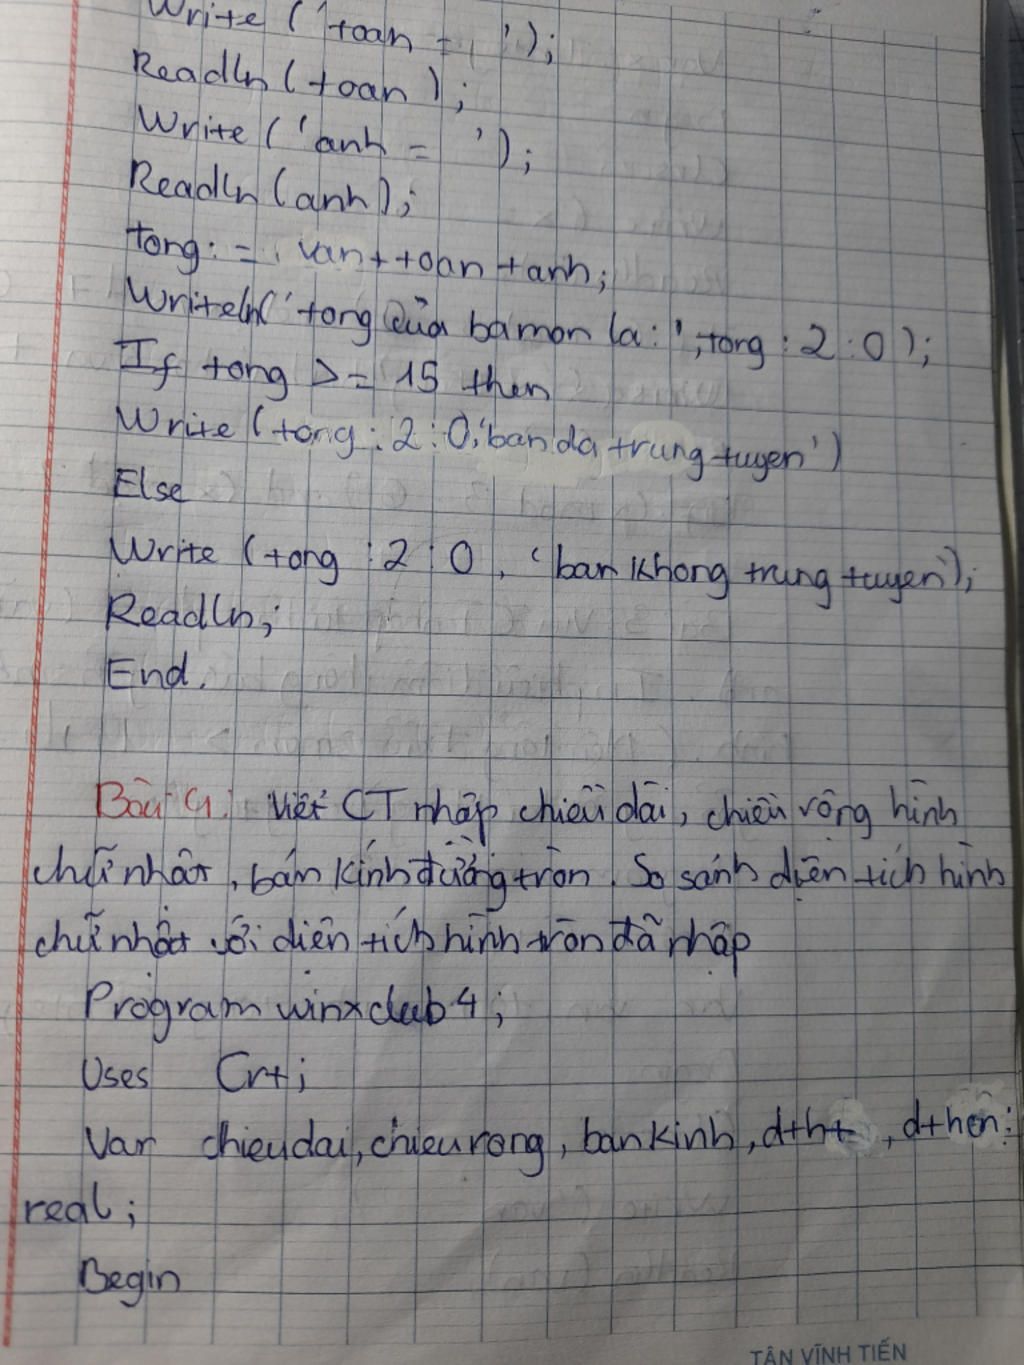 Write ('toan = ');
Readln (toan);
Write ('anh = ');
Readln (anh);
tong: = van + toan + anh;
Writeln(' tong của bamon la:', tong : 2 : 0);
If tong >= 15 then
Write (tong : 2 : 0,'ban da trung tuyen')
Else
Write (tong : 2 : 0, 'ban Khong trung tuyen');
Readln;
End.
Bài 4: Viết CT nhập chiều dài, chiều rộng hình
chữ nhật, bán Kính đường tròn. So sánh diện tích hình
chữ nhật với diện tích hình tròn đã nhập
Program winxclub4;
Uses Crt;
Var chieudai, chieurong, ban kinh, dtht, dthcn:
real;
Begin
TÂN VĨNH TIẾN